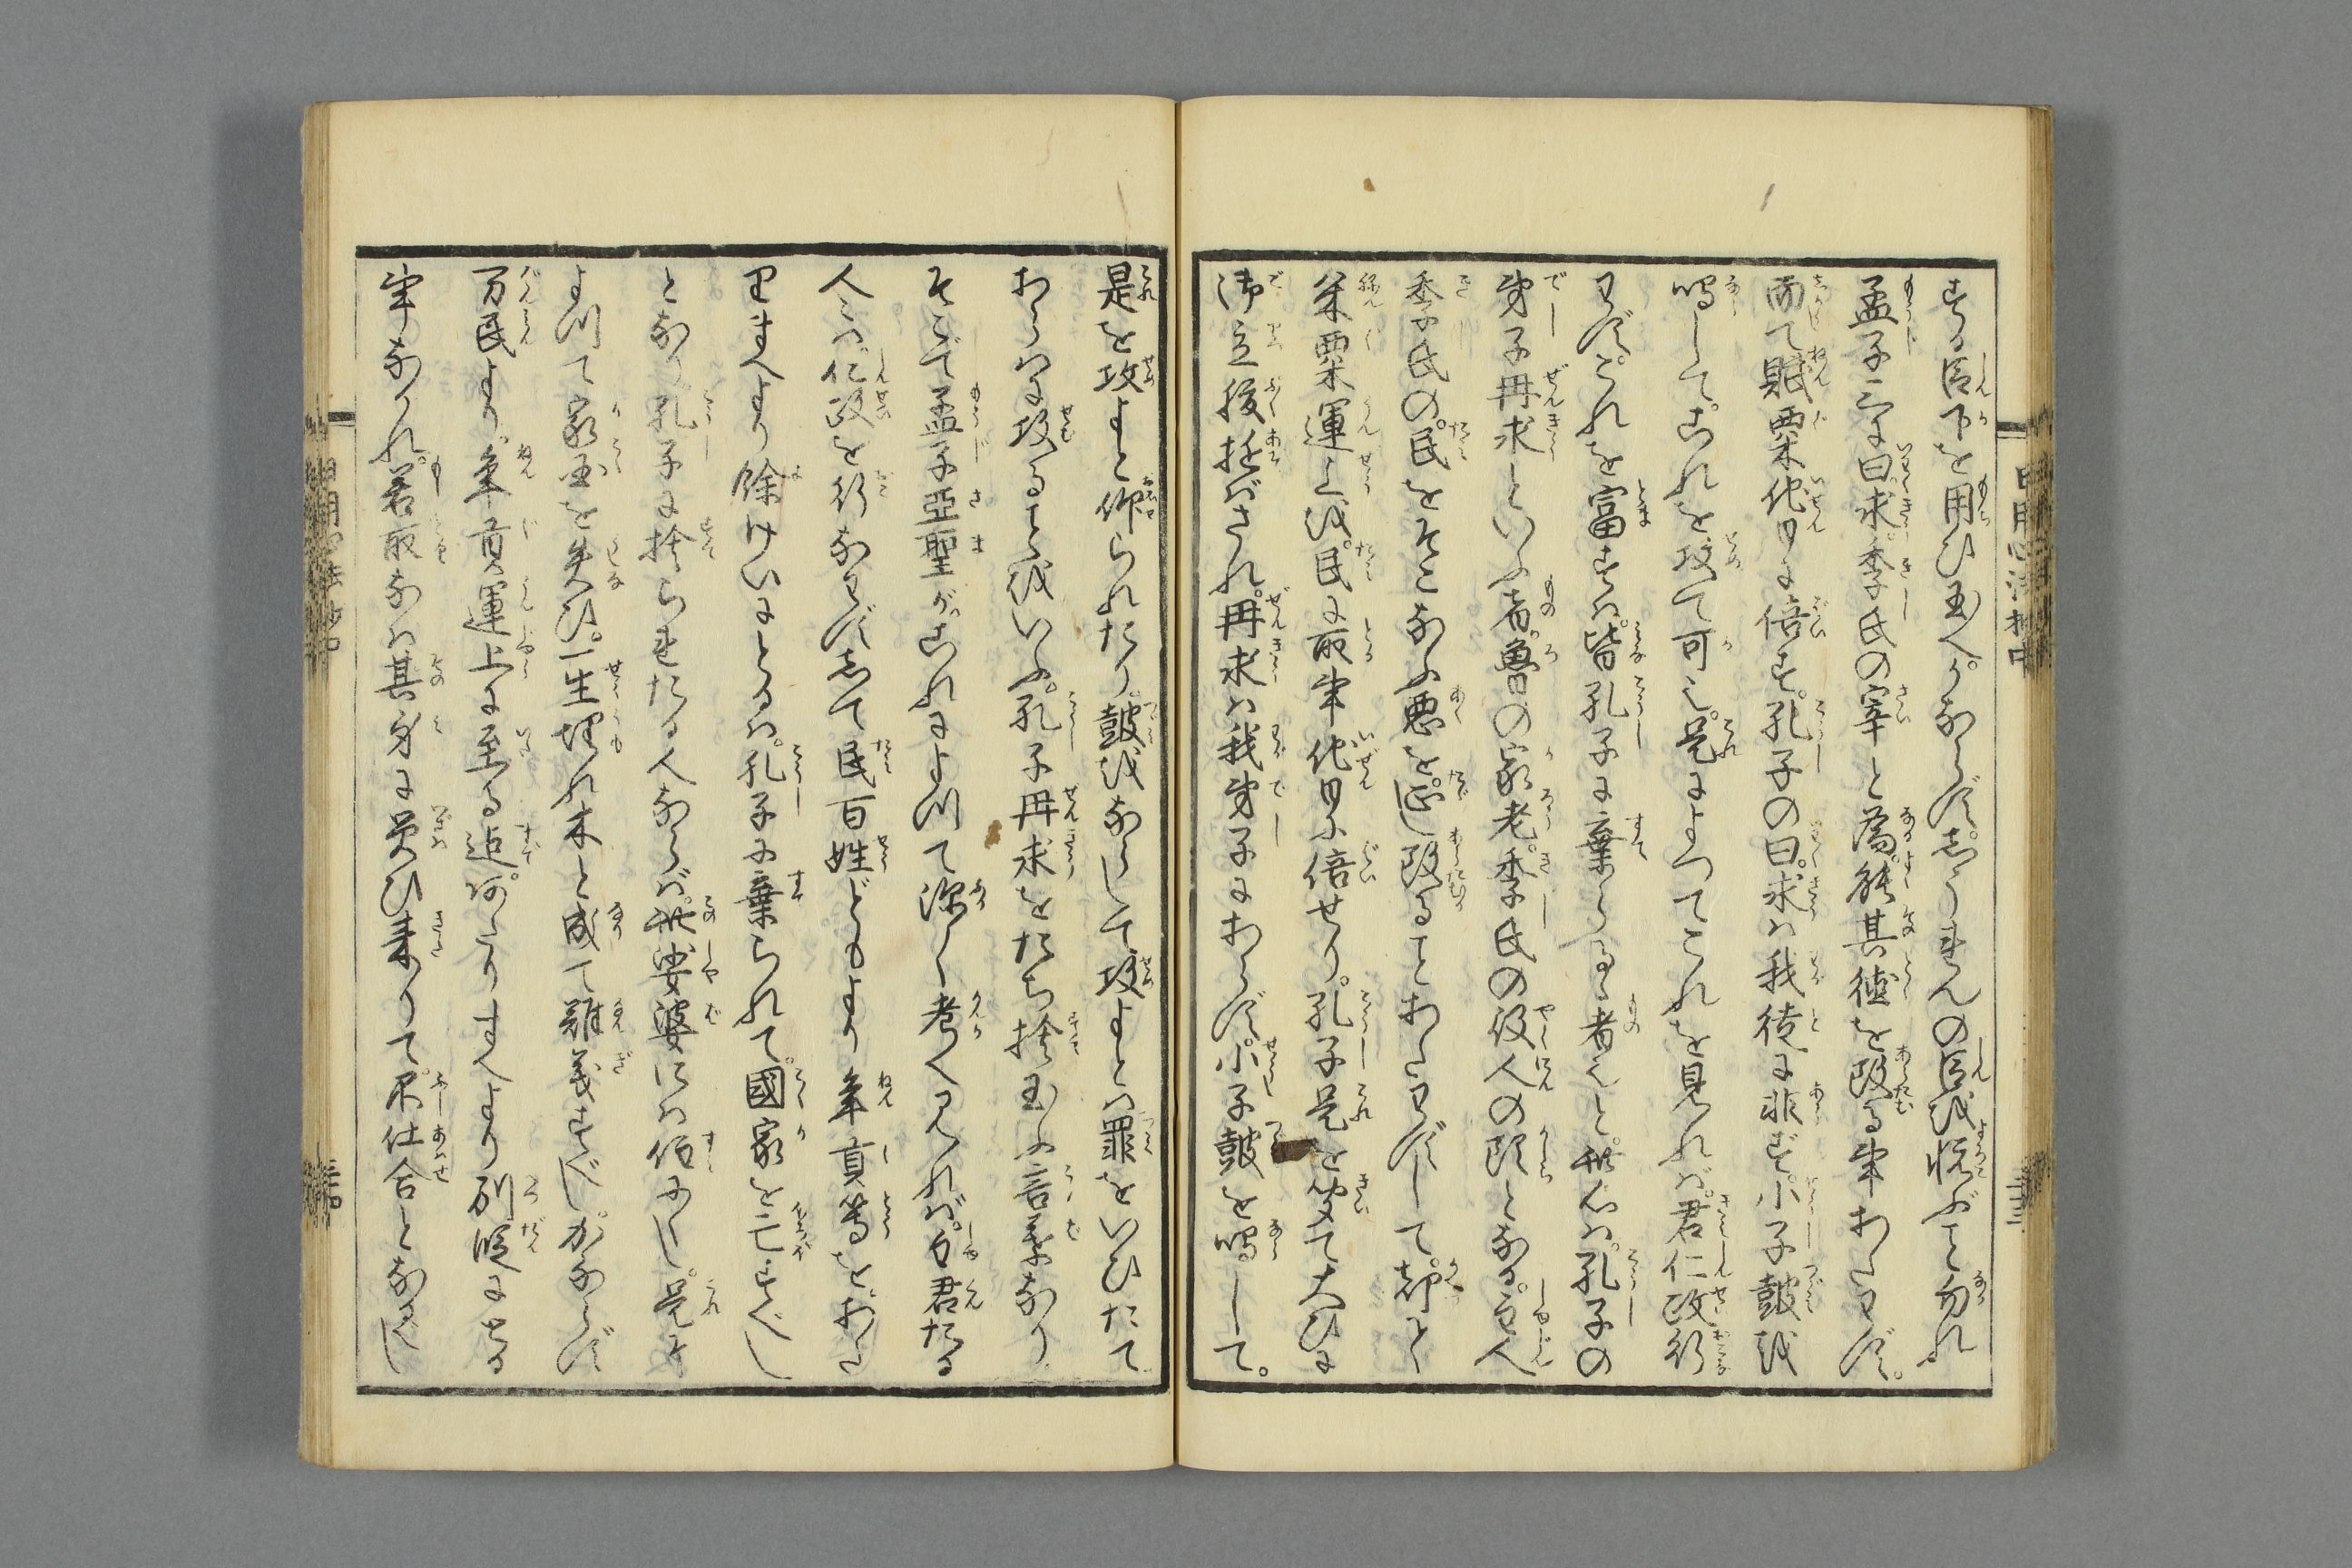 する臣下を用ひ玉へ。ならず。しうれんの臣を悦ぶこと勿れ
孟子に曰。求。季氏の宰と為。能其徳を改る事あたはず。
而て賦粟他日に倍す。孔子の曰。求は我徒に非ず。小子鼓を
鳴して。これを攻て可也。是によつてこれを見れば。君仁政行
はず。これを富すは。皆孔子に棄らるゝ者也と。此心は。孔子の
弟子冉求といふ者。魯の家老。季氏の役人の頭となる。主人
季氏の。民をそこなふ悪を。正し改ることあたはずして。却て
米粟運上を。民に取事他日に倍せり。孔子是を聞て大ひに
御立腹遊ばされ。冉求は我弟子にあらず。小子鼓を鳴して。
是を攻よと仰られたり。鼓をならして攻よとは罪をいひたて
あらはに攻ることをいふ。孔子冉求をたち捨玉ふ言葉なり
そこで孟子亞聖が。これによつて深く考へ見れば。主君たる
人には仁政を行なはずして民百姓どもより年貢等を。あた
りまへより餘けいにとるは。孔子に棄られて。國家を亡すべし
となり孔子に捨られたる人ならば。此娑婆には住なし。是に
よつて家国を失ひ。一生埋れ木と成て難義すべし。かならず
万民より。年貢運上に至る迄。あたりまへより別段にとる
事なかれ。若取ならは其身に災ひ来りて。不仕合となるべし